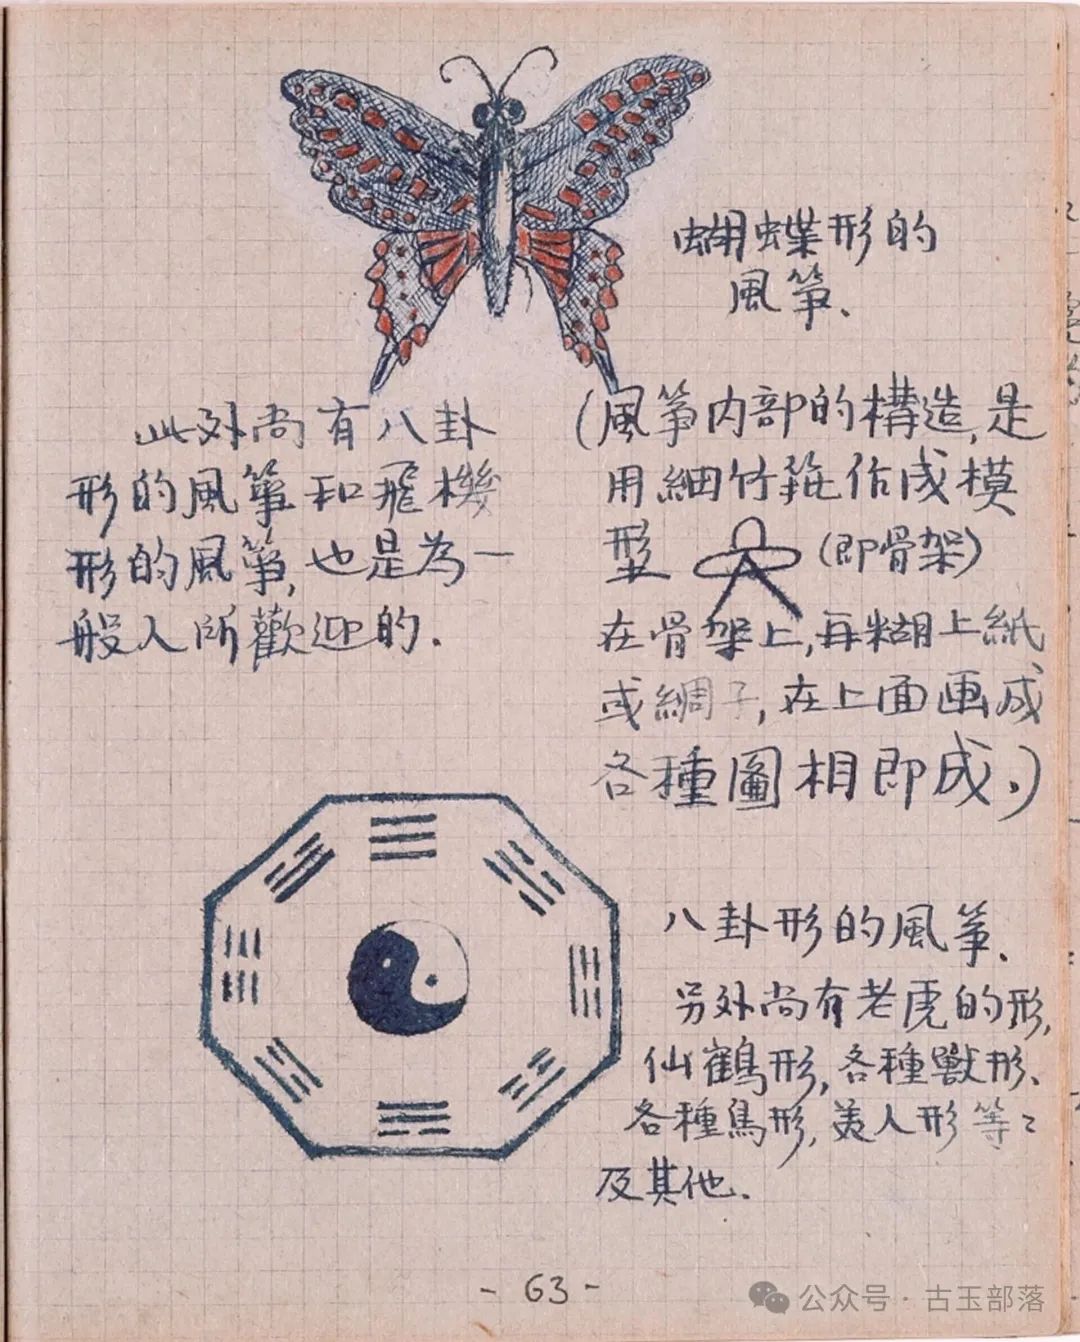 蝴蝶形的
風箏.
此外尚有八卦
形的風箏和飛機
形的風箏,也是為一
般人所歡迎的.
(風箏内部的構造,是
用細竹篾作成模
型 (即骨架)
在骨架上,再糊上紙
或綢子,在上面画成
各種圖相即成.)
八卦形的風箏.
另外尚有老虎的形,
仙鶴形,各種獸形、
各種鳥形,美人形等々
及其他.
- 63 -
公众号 · 古玉部落